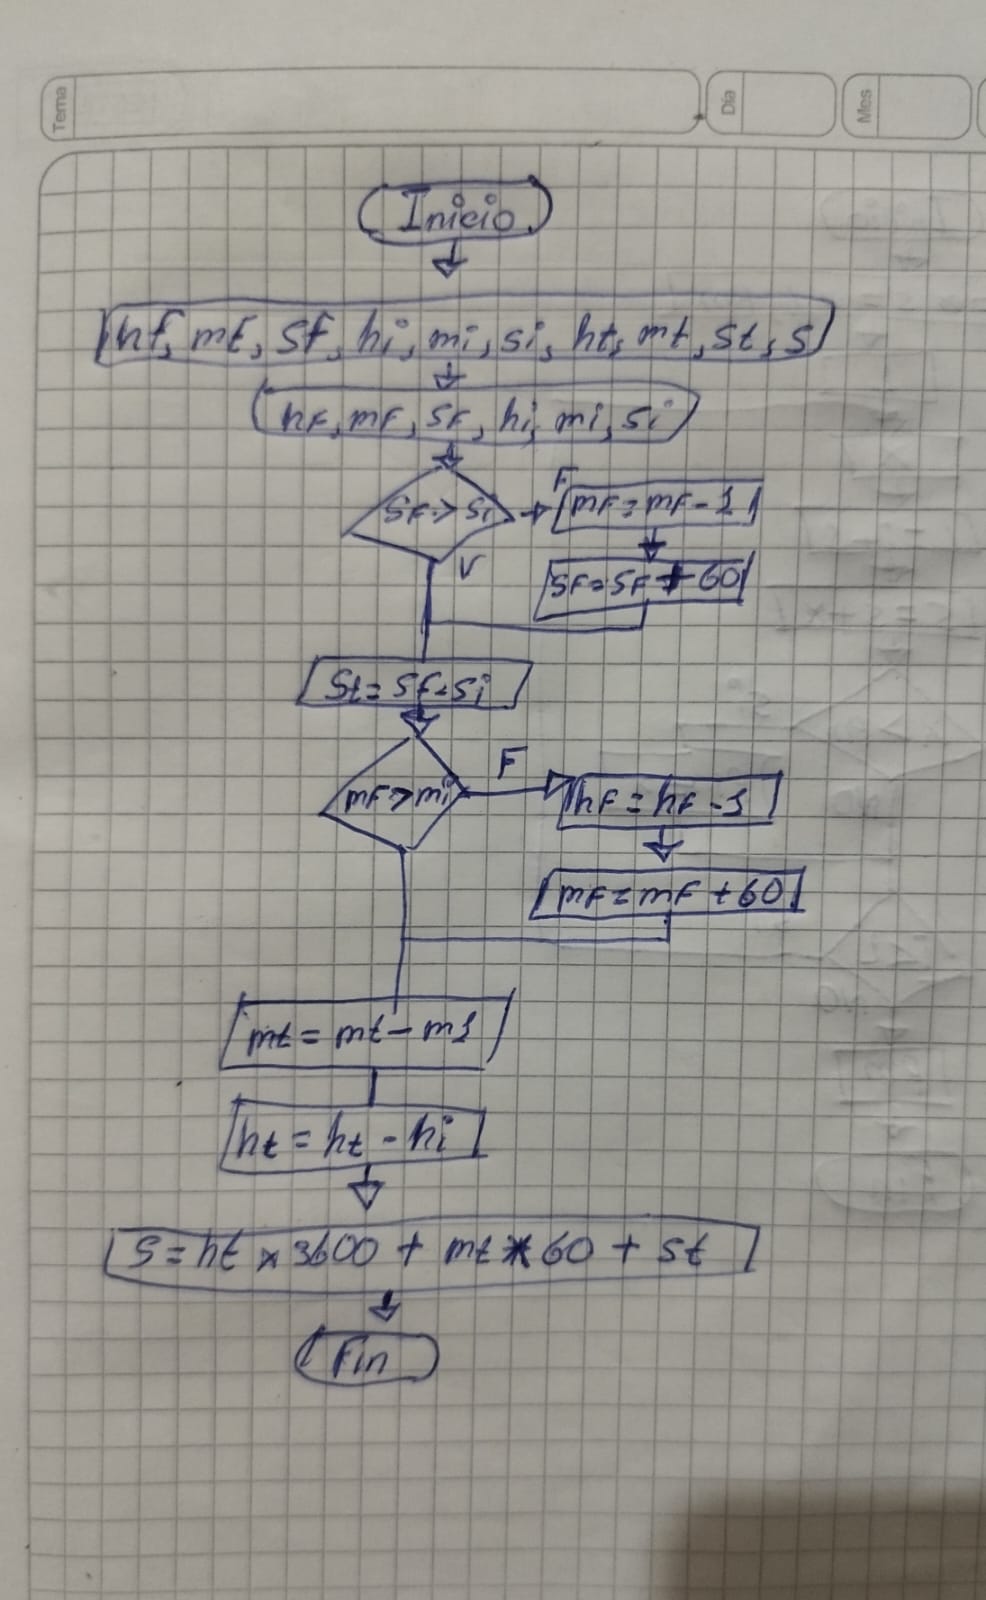 Tema Día Mes
Inicio
hf, mf, Sf, hi, mi, si, ht, mt, St, S
hf, mf, Sf, hi, mi, Si
Sf < Si F mf = mf - 1
V
Sf = Sf + 60
St = Sf - Si
mf < mi F hf = hf - 1
mf = mf + 60
mt = mt - m1
ht = ht - hi
S = ht * 3600 + mt * 60 + St
Fin